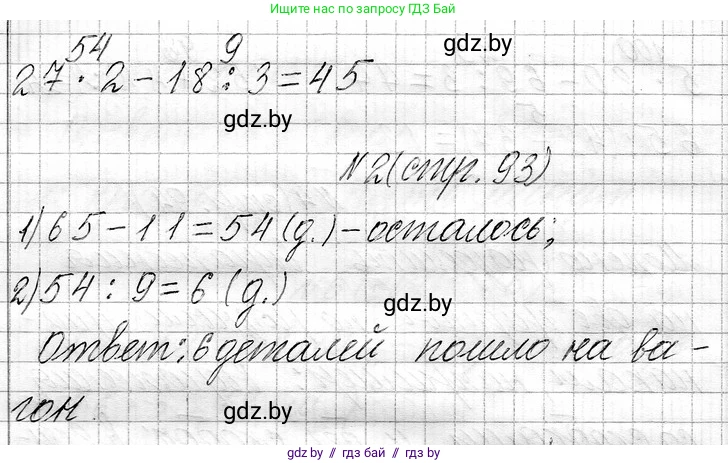 Ищите нас по запросу ГДЗ Бай
gdz.by
54 9
27 · 2 - 18 : 3 = 45
gdz.by
N 2 (стр. 93)
1) 65 - 11 = 54 (д.) - осталось;
2) 54 : 9 = 6 (д.)
gdz.by
Ответ: 6 деталей пошло на ва-
гон.
gdz.by
gdz.by // гдз бай // gdz.by